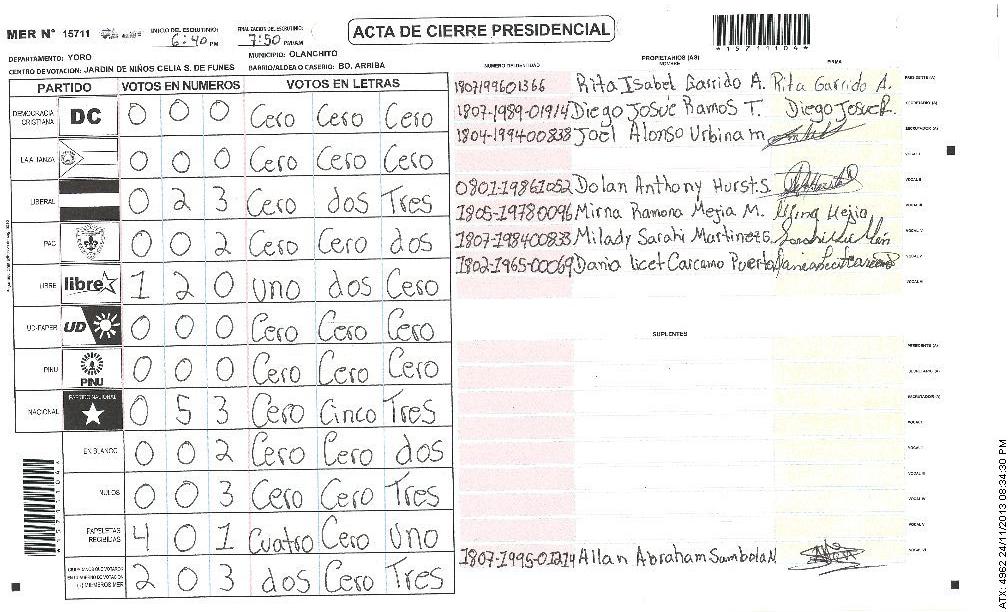 MER N° 15711
INICIO DEL ESCRUTINIO: 6:40 PM
FINALIZACION DEL ESCRUTINIO: 7:50 PM/AM
ACTA DE CIERRE PRESIDENCIAL
*15711104*
DEPARTAMENTO: YORO
MUNICIPIO: OLANCHITO
CENTRO DE VOTACION: JARDIN DE NIÑOS CELIA S. DE FUNES
BARRIO/ALDEA O CASERIO: BO. ARRIBA
PARTIDO VOTOS EN NUMEROS VOTOS EN LETRAS
DEMOCRACIA CRISTIANA DC 0 0 0 Cero Cero Cero
LA ALIANZA 0 0 0 Cero Cero Cero
LIBERAL 0 2 3 Cero dos Tres
PAC 0 0 2 Cero Cero dos
LIBRE libre 1 2 0 uno dos Cero
UD-FAPER UD 0 0 0 Cero Cero Cero
PINU PINU 0 0 0 Cero Cero Cero
NACIONAL PARTIDO NACIONAL 0 5 3 Cero Cinco Tres
EN BLANCO 0 0 2 Cero Cero dos
NULOS 0 0 3 Cero Cero Tres
PAPELETAS RECIBIDAS 4 0 1 Cuatro Cero uno
CIUDADANOS QUE VOTARON EN CUADERNO DE VOTACION (+) MIEMBROS MER 2 0 3 dos Cero Tres
PROPIETARIOS (AS)
NUMERO DE IDENTIDAD NOMBRE FIRMA
1807199601366 Rita Isabel Garrido A. Rita Garrido A. PRESIDENTE (A)
1807-1989-01914 Diego Josue Ramos T. Diego Josue R. SECRETARIO (A)
1804-199400838 Joel Alonso Urbina m ESCRUTADOR (A)
VOCAL I
0801-19861052 Dolan Anthony Hurst.S. VOCAL II
1805-19780096 Mirna Ramona Mejia M. Mirna Mejia VOCAL III
1807-198400833 Milady Sarahi Martinez G. VOCAL IV
1802-1965-00069 Dania licet Carcamo Puerto VOCAL V
VOCAL VI
SUPLENTES
PRESIDENTE (A)
SECRETARIO (A)
ESCRUTADOR (A)
VOCAL I
VOCAL II
VOCAL III
VOCAL IV
VOCAL V
1807-1995-01214 Allan Abraham Sambola M. VOCAL VI
ATX: 4962 24/11/2013 08:34:30 PM